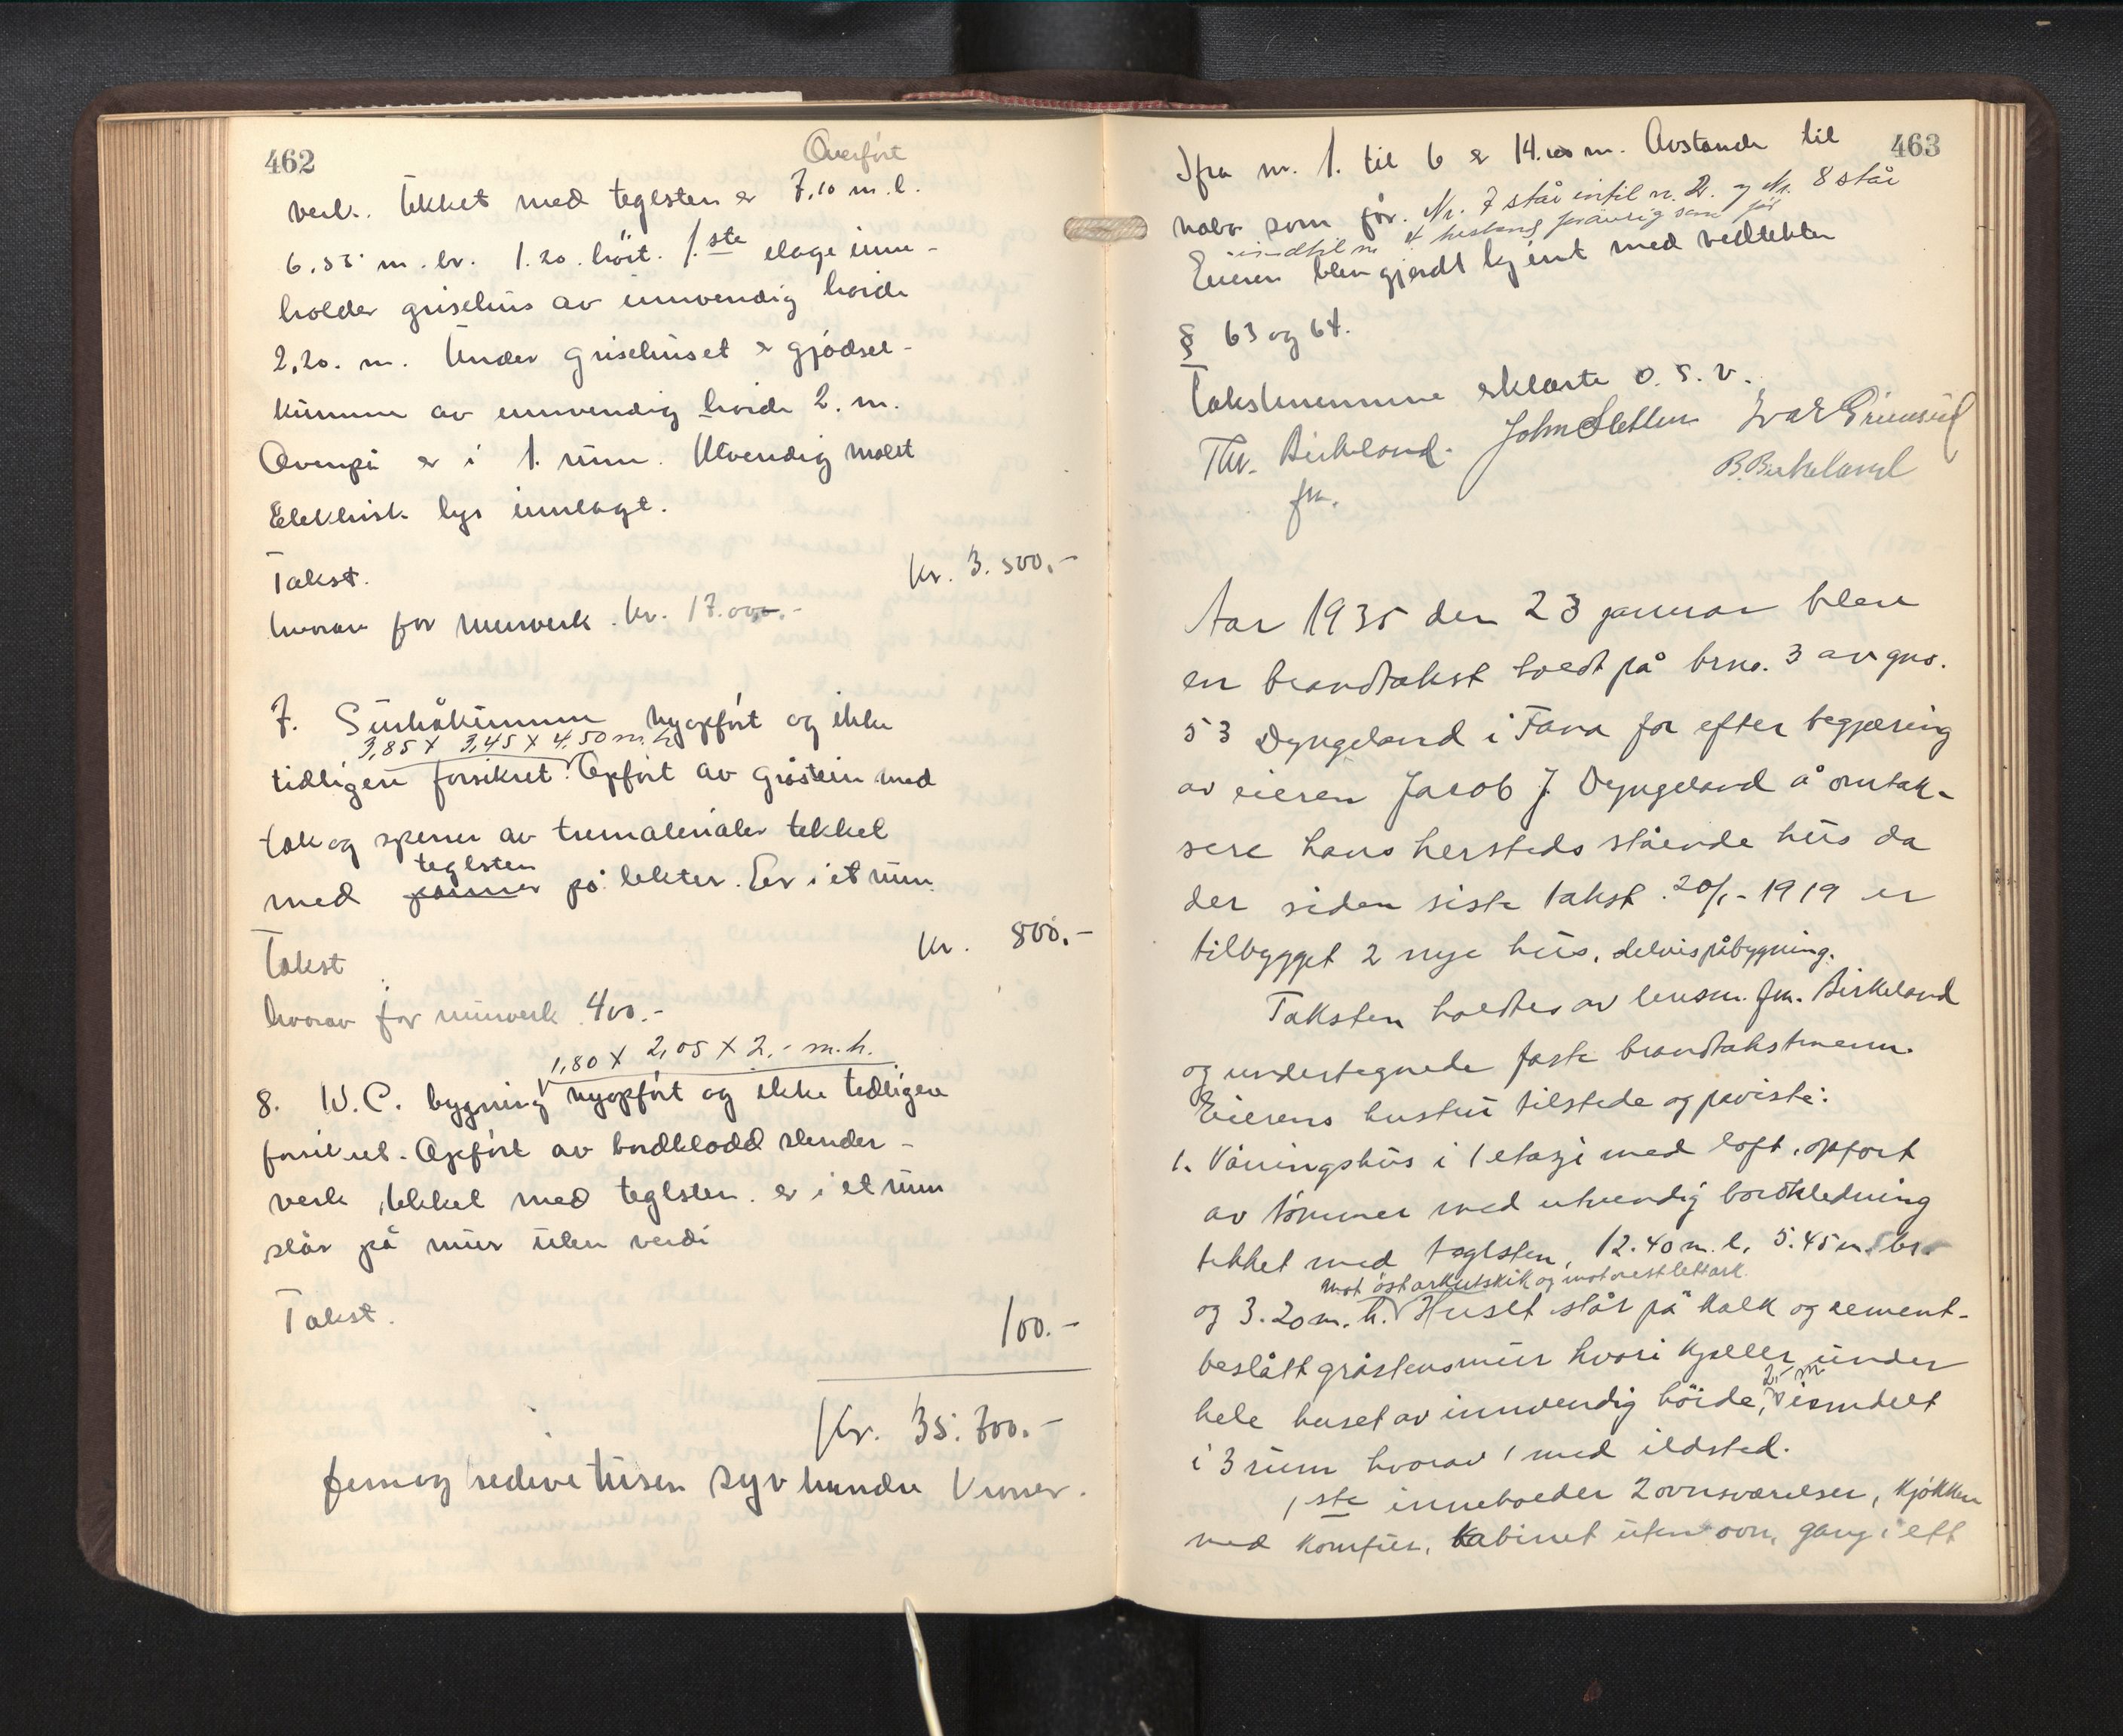 462
Overført
verk. Tekket med teglsten er 7,10 m.l.
6,55 m. br. 1.20 höit. 1.ste etage inne-
holder grisehus av innvendig höide
2,20. m. Under grisehuset er gjödsel-
kummen av innvendig höide 2. m.
Ovenpå er i 1. rum. Utvendig malt
Elektrisk lys innlagt.
Takst. kr. 3.500,-
hvorav for murverk. kr. 1700,-
7. Surhåkummen nyopfört og ikke
3,85 X 3,45 X 4,50 m. h
tidligere forsikret. Opfört av gråstein med
tak og sperrer av trematerialer tekket
teglsten
med panner på lekter. Er i et rum
Takst kr. 800,-
hvorav for murverk 400.-
1,80 X 2,05 X 2,- m.h.
8. W.C. bygning nyopfört og ikke tidligere
forsikret. Opfört av bordklædd stender-
verk, tekket med teglsten. er i et rum
står på mur uten verdi
Takst. 100.-
Kr. 35.700.-
femogtredive tusen syv hundre Kroner.
463
Ifra nr. 1. til 6 er 14.00 m. Avstande til
nabo som för. Nr. 7 står intil nr. 2. og Nr. 8 står
indtil nr. 4 forövrig som för
Eieren blev gjordt kjent med vedtekter
§ 63 og 64.
Takstmennene erklærte o.s.v.
Thv. Birkeland. John Sletten Ivar Grimseid
fm. B. Birkeland
Aar 1935 den 23 januar blev
en brandtakst holdt på brno. 3 av gno.
53 Dyngeland i Fana for efter begjæring
av eieren Jacob J. Dyngeland å omtak-
sere hans hersteds stående hus da
der siden siste takst 20/1-1919 er
tilbygget 2 nye hus, delvis påbygning.
Taksten holdtes av lensm. fm. Birkeland
og undertegnede faste brandtakstmenn.
Eierens hustru tilstede og paviste:
1. Våningshus i 1 etage med loft, opfört
av tömmer med utvendig bordkledning
tekket med teglsten, 12.40 m.l. 5.45 m. br.
mot öst arkutskik og mot vest lettark.
og 3.20 m. h. Huset står på kalk og sement-
beslått gråstensmur hvori kjeller under
2,- m
hele huset av innvendig höide, inndelt
i 3 rum hvorav 1 med ildsted.
1ste inneholder 2 ovnsværelser, kjökken
med komfur, kabinet uten ovn, gang i ett